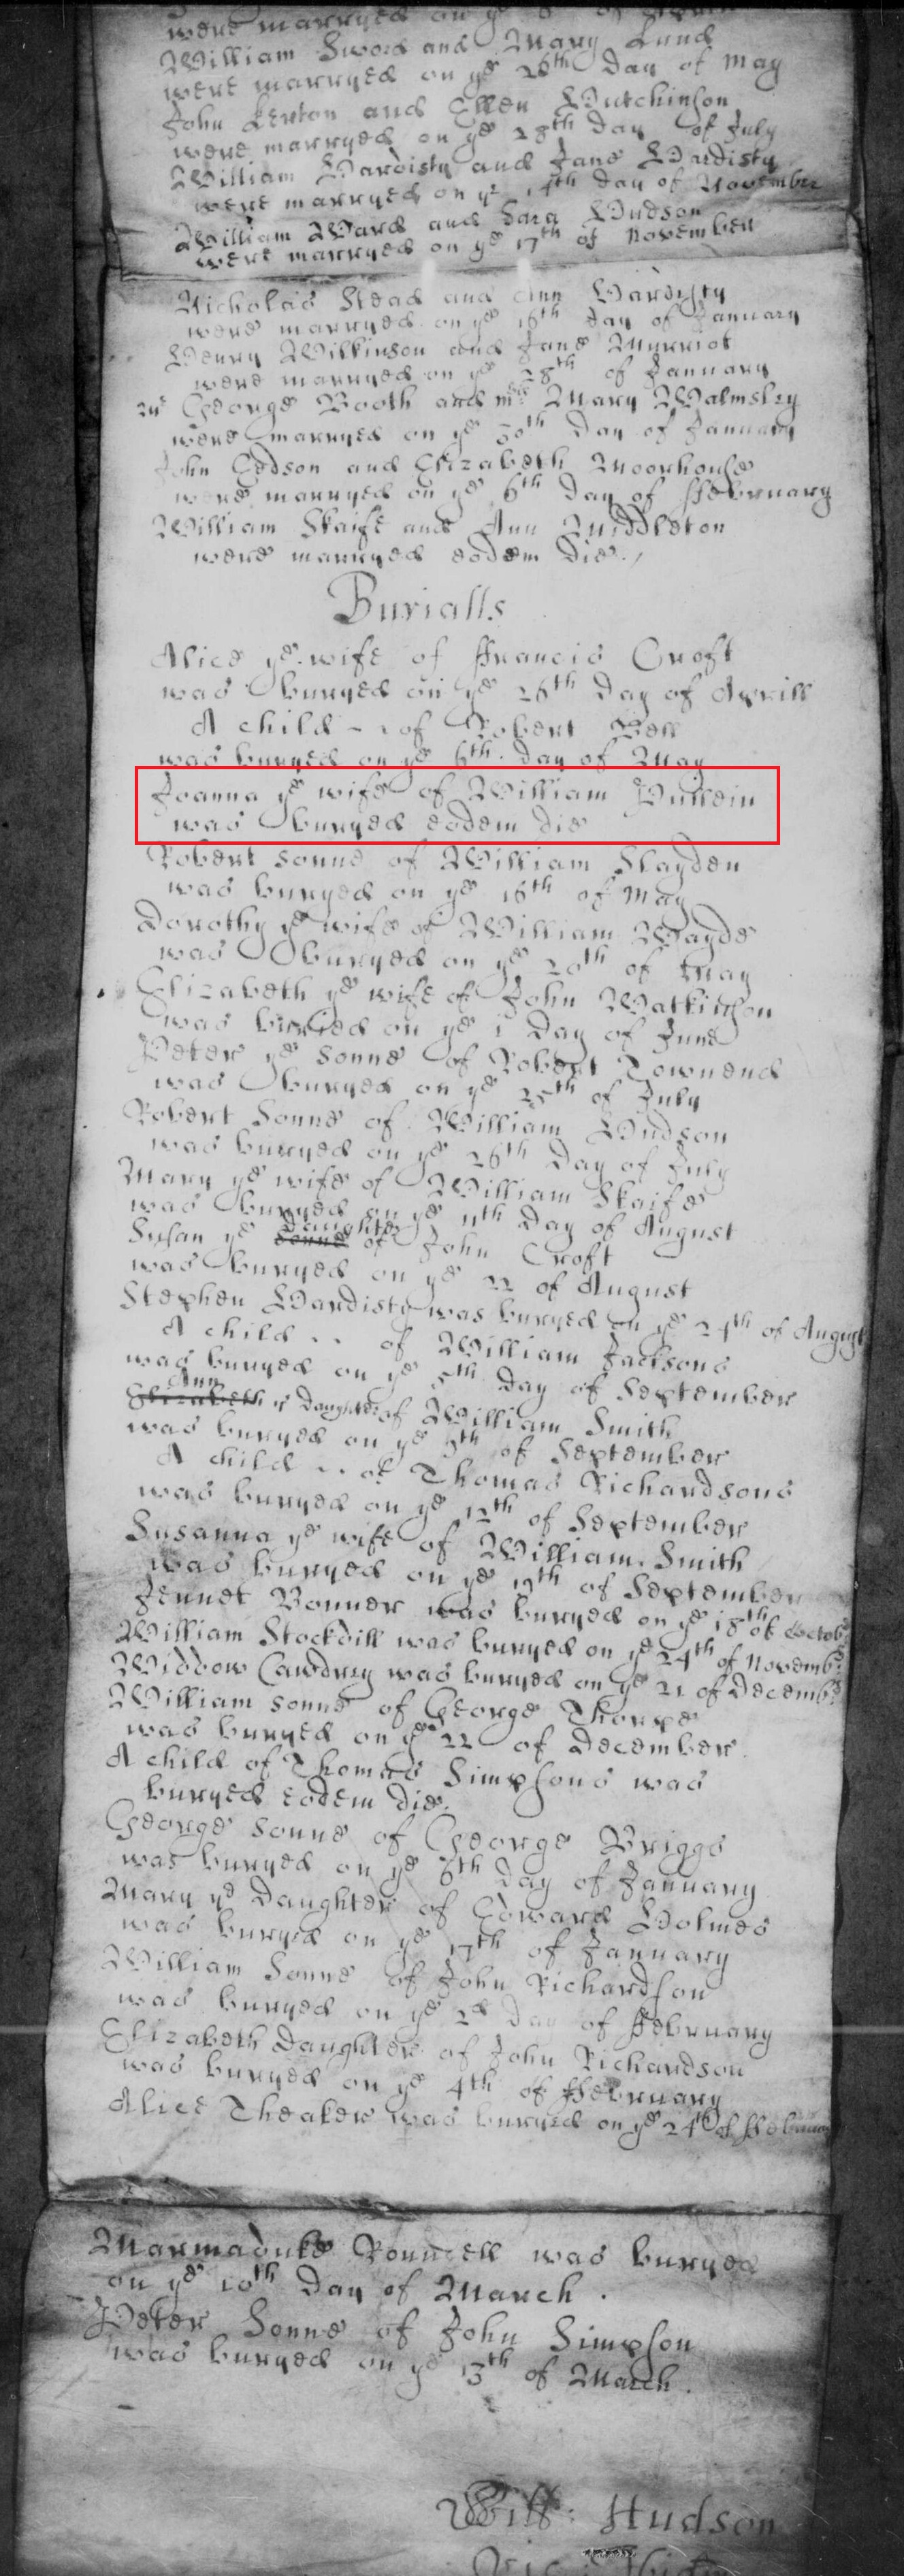 were marryed on ye 8 of
William Sword and Mary Lund
were marryed on ye 26th Day of May
John Lenton and Ellen Hutchinson
were marryed on ye 28th day of July
William Hardisty and Jane Hardisty
were marryed on ye 14th day of November
William Ward and Sara Hudson
were marryed on ye 17th of November
Nicholas Stead and Ann Hardisty
were marryed on ye 16th day of January
Henry Wilkinson and Jane Myrriot
were marryed on ye 28th of January
George Booth and Mary Walmsley
were marryed on ye 30th Day of January
John and Elizabeth Moorhouse
were marryed on ye 6th Day of ffebruary
William Skaife and Ann Middleton
were marryed eodem die
Burialls
Alice ye wife of ffrancis Croft
was buryed on ye 26th Day of Aprill
A child - - of Robert Bell
was buryed on ye 6th day of May
Joanna ye wife of William Pullein
was buryed eodem die
Robert sonne of William Slayden
was buryed on ye 16th of May
Dorothy ye wife of William Wayde
was buryed on ye 20th of May
Elizabeth ye wife of John Watkinson
was buried on ye 1 Day of June
Peter ye sonne of Robert Townend
was buryed on ye 25th of July
Robert Sonne of William Hudson
was buryed on ye 26th Day of July
Mary ye wife of William Skaife
was buryed on ye 11th Day of August
Susan ye sonne Daughter of John Croft
was buryed on ye 22 of August
Stephen Hardisty was buryed on ye 24th of August
A child - - of William Jacksons
was buryed on ye 5th Day of September
Elizabeth Ann ye Daughter of William Smith
was buryed on ye 9th of September
A child - - of Thomas Richardsons
was buryed on ye 12th of September
Susanna ye wife of William Smith
was buryed on ye 19th of September
Jennet Bonner was buryed on ye 18th of Octob:
William Stockdill was buryed on ye 24th of Novemb:
Widdow Cawdrey was buryed on ye 21 of Decemb:
William sonne of George Thorpe
was buryed on ye 22 of December
A child of Thomas Simpsons was
buryed eodem die.
George sonne of George Briggs
was buryed on ye 6th Day of January
Mary ye Daughter of Edward Holmes
was buryed on ye 17th of January
William Sonne of John Richardson
was buryed on ye 2d Day of ffebruary
Elizabeth Daughter of John Richardson
was buryed on ye 4th of ffebruary
Alice Theaker was buryed on ye 24th of ffebruary
Marmaduke Rounsell was buryed
on ye 10th Day of March.
Peter Sonne of John Simpson
was buryed on ye 13th of March.
Will: Hudson